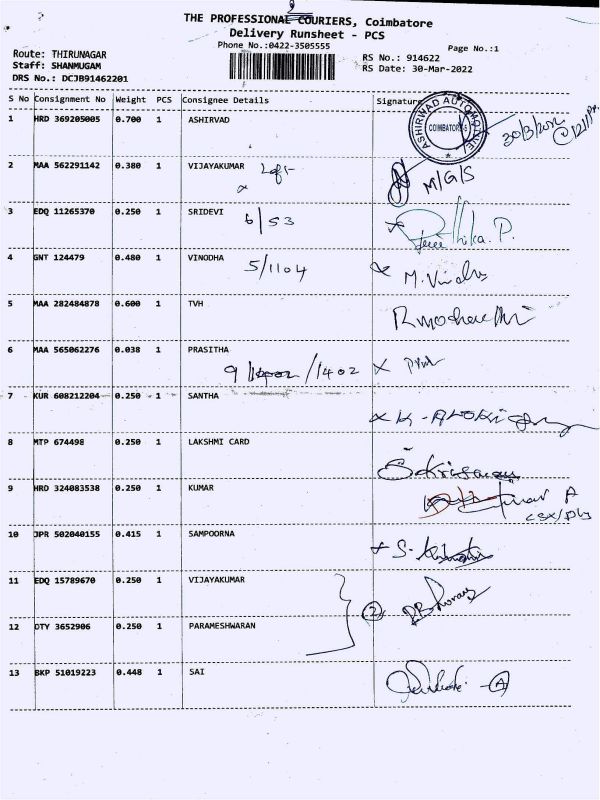 THE PROFESSIONAL COURIERS, Coimbatore
Delivery Runsheet - PCS
Phone No.:0422-3505555
Page No.:1
Route: THIRUNAGAR
Staff: SHANMUGAM
DRS No.: DCJB91462201
RS No.: 914622
RS Date: 30-Mar-2022
S No Consignment No Weight PCS Consignee Details Signature
1 HRD 369205005 0.700 1 ASHIRVAD
ASHIRWAD AUTOMOTIVE
COIMBATORE
30/3/2022
2 MAA 562291142 0.380 1 VIJAYAKUMAR
M/G/S
3 EDQ 11265370 0.250 1 SRIDEVI
6/53
4 GNT 124479 0.480 1 VINODHA
5/1104
5 MAA 282484878 0.600 1 TVH
6 MAA 565062276 0.038 1 PRASITHA
9 /1402
7 KUR 608212204 0.250 1 SANTHA
8 MTP 674498 0.250 1 LAKSHMI CARD
9 HRD 324083538 0.250 1 KUMAR
10 JPR 502040155 0.415 1 SAMPOORNA
11 EDQ 15789670 0.250 1 VIJAYAKUMAR
2
12 OTY 3652906 0.250 1 PARAMESHWARAN
13 BKP 51019223 0.448 1 SAI
A